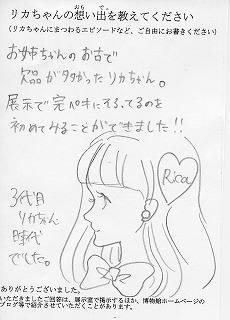 リカちゃんの想い出を教えてください
おも で
(リカちゃんにまつわるエピソードなど、ご自由にお書きください)
お姉ちゃんのお古で
欠品が多かったリカちゃん。
展示で完ペキにそろってるのを
初めてみることができました!!
Rica
3代目
リカちゃん
時代
でした。
ありがとうございました。
いただきましたご回答は、展示室で掲示するほか、博物館ホームページの
ブログ等で紹介させていただくことがあります。